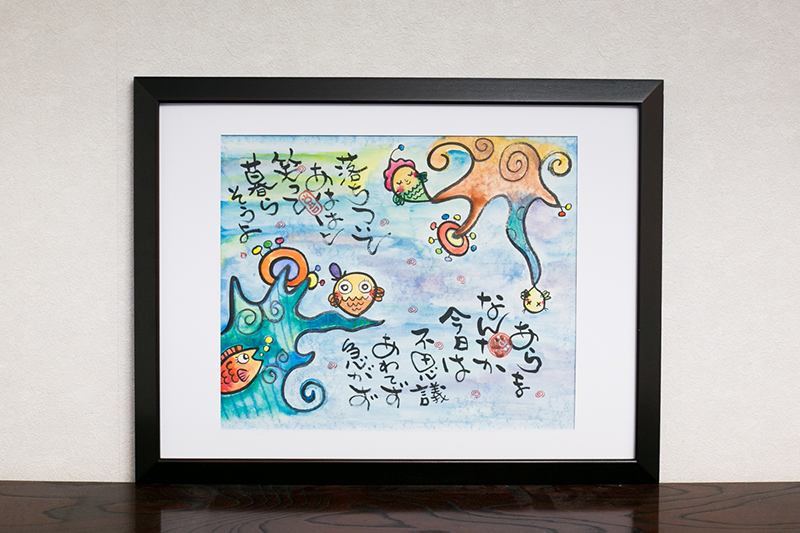 あらま
なんだか
今日は
不思議
あわてず
急がず
落ちついて
あははと
笑って
暮ら
そうよ